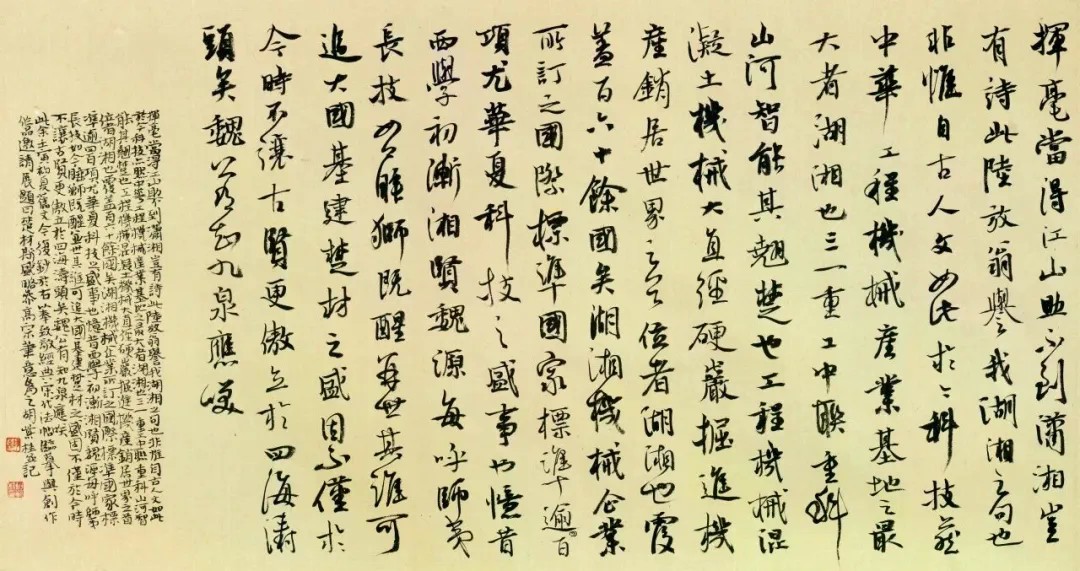 揮毫當得江山助不到瀟湘豈
有詩此陸放翁譽我湖湘之句也
非惟自古人文如此於今科技亦
中華工程機械產業基地之最
大者湖湘也三一重工中聯重科
山河智能其翹楚也工程機械混
凝土機械大直徑硬巖掘進機
產銷居世界之首位者湖湘也覆
蓋百六十餘國矣湖湘機械企業
所訂之國際標準國家標準逾百
項尤華夏科技之盛事也憶昔
西學初漸湘賢魏源每呼師夷
長技如今睡獅既醒並世其誰可
追大國基建楚材之盛固不僅於
今時不讓古賢更傲立於四海濤
頭矣魏公有知九泉應笑
揮毫當得江山助不到瀟湘豈有詩此陸放翁譽我湖湘之句也非惟自古人文如此
於今科技亦然中華工程機械產業基地之最大者湖湘也三一重工中聯重科山河智
能其翹楚也工程機械混凝土機械大直徑硬巖掘進機產銷居世界之首
位者湖湘也覆蓋百六十餘國矣湖湘機械企業所訂之國際標準國家標
準逾四百項尤華夏科技之盛事也憶昔西學初漸湘賢魏源每呼師夷
長技如今睡獅既醒並世其誰可追大國基建楚材之盛固不僅於今時
不讓古賢更傲立於四海濤頭矣魏公有知九泉應笑
此余壬寅初夏舊文今復鈔於石峯致敬經典宋代法帖臨摹與創作
作品邀請展題曰楚材斯盛臨泰高宗筆意為之胡紫桂並記